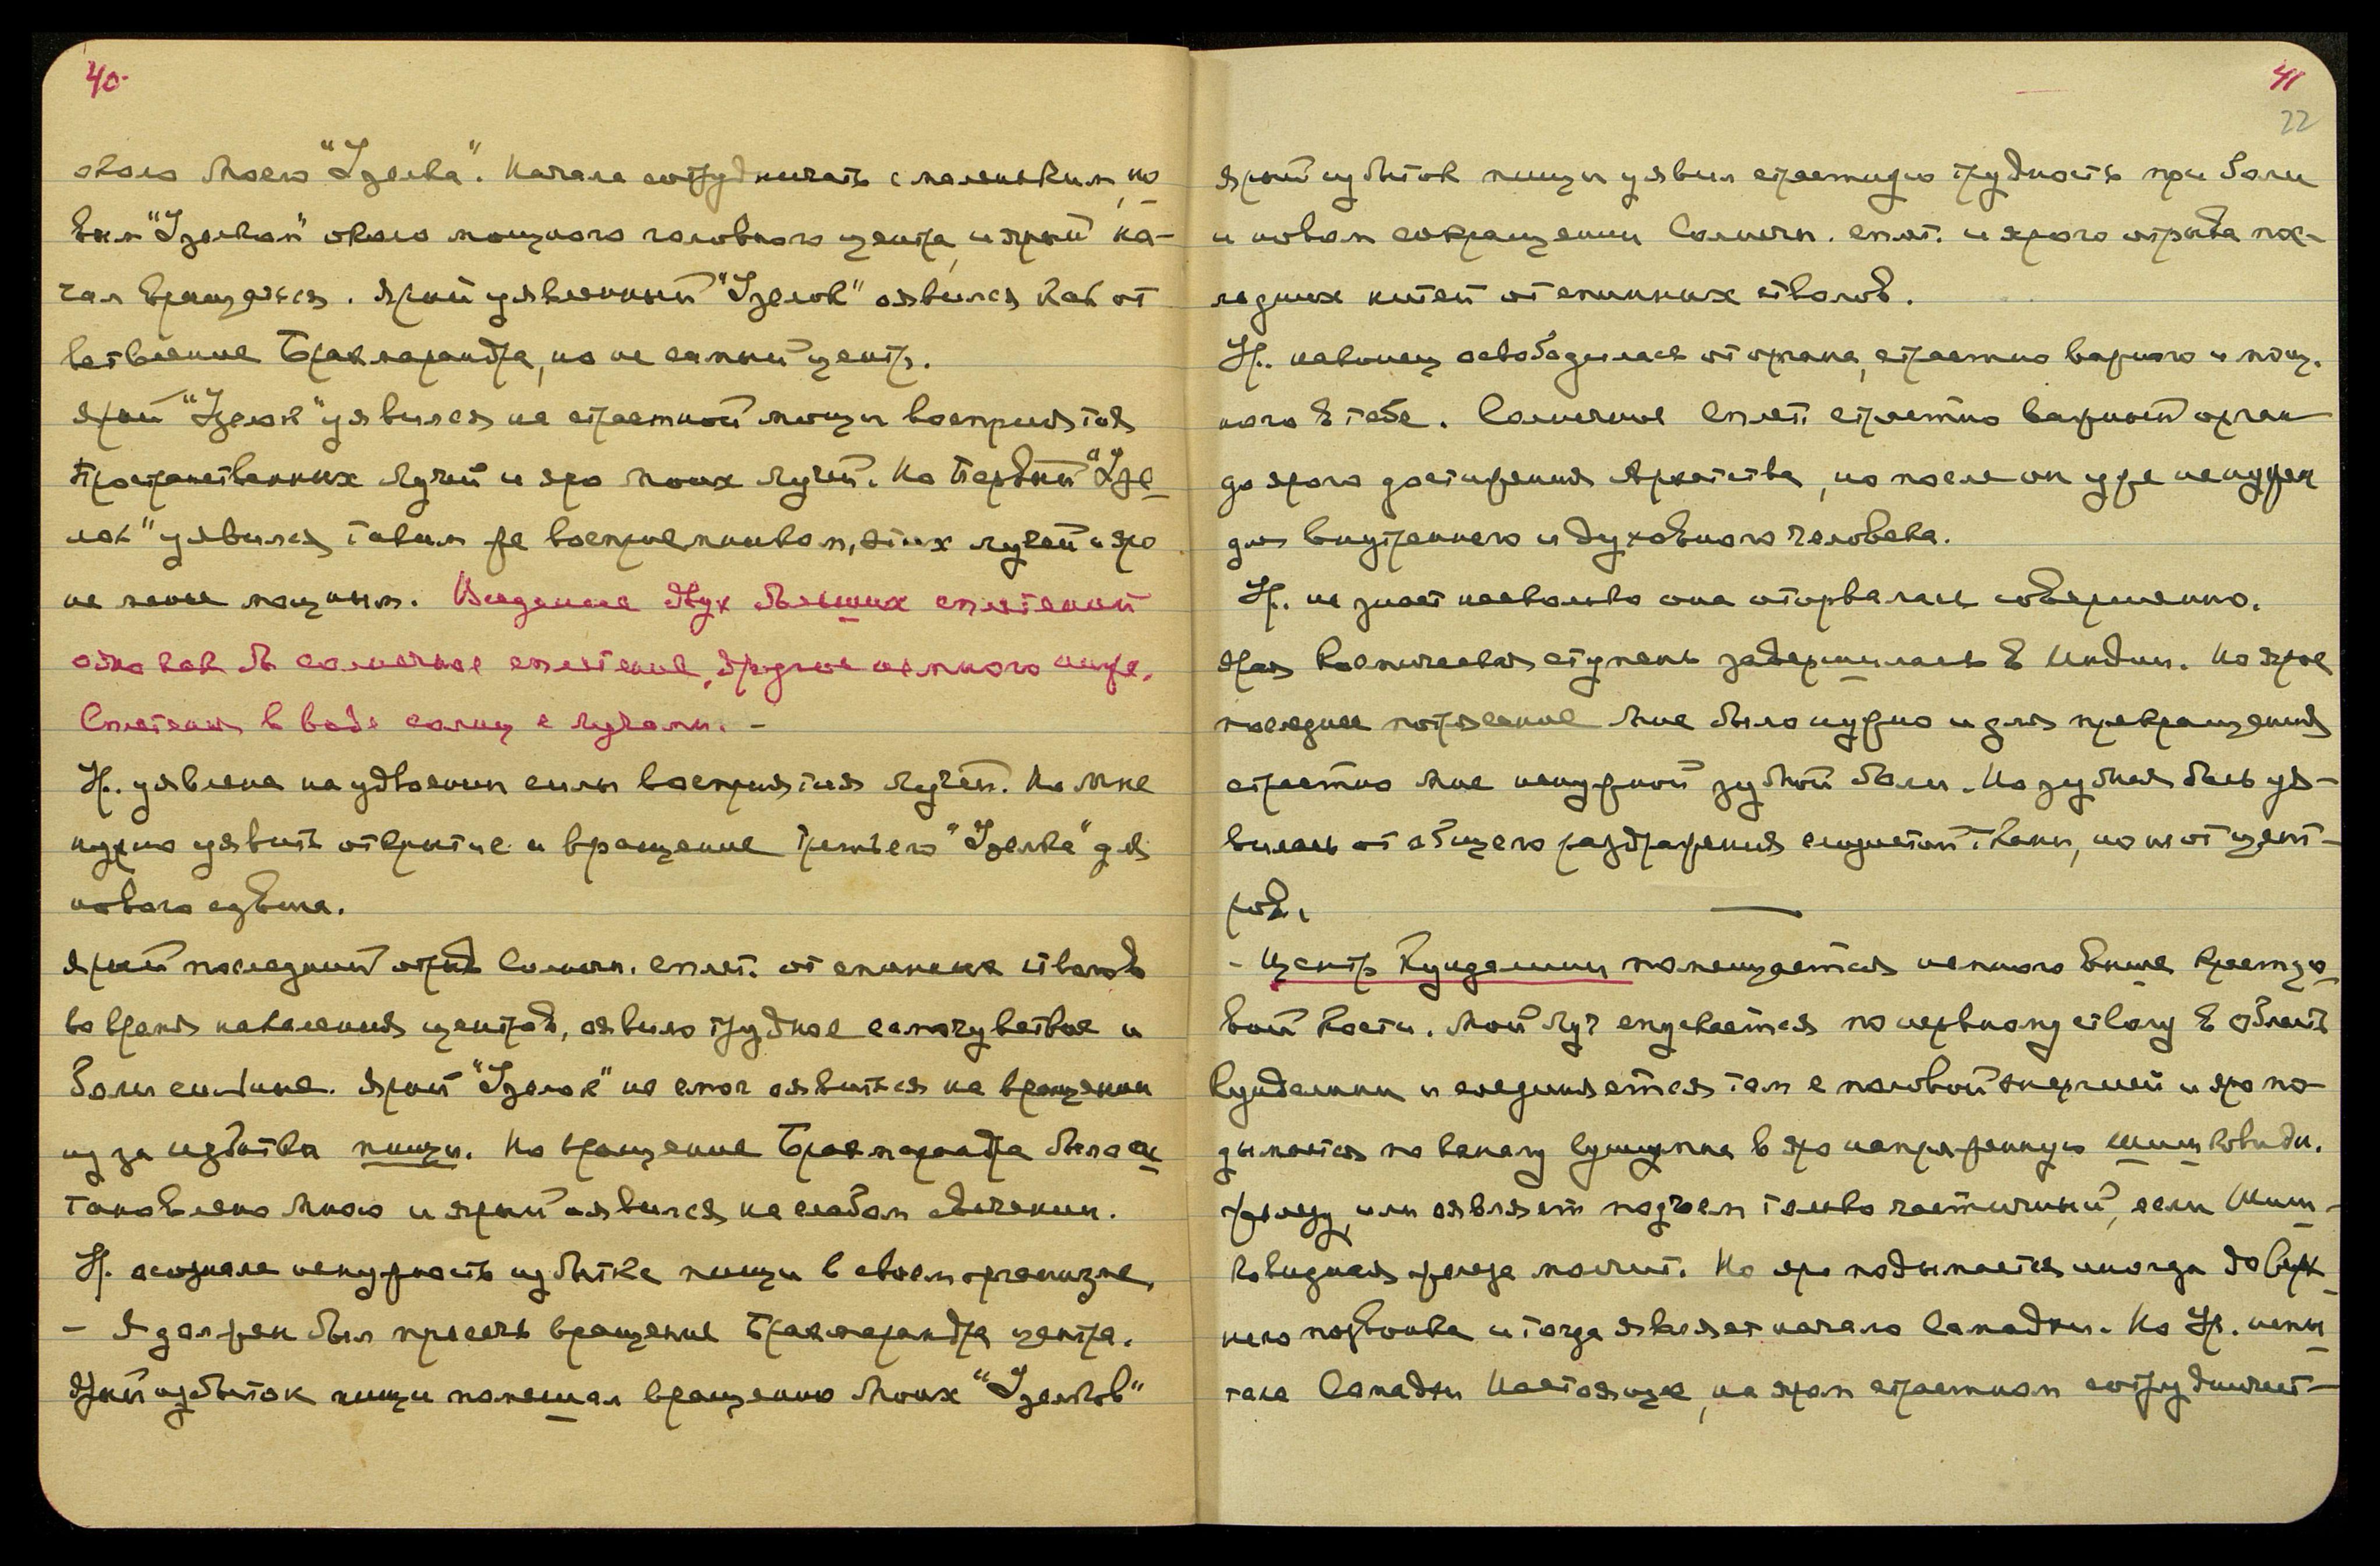 40.
около Моего "Узелка". Начала сотрудничать с маленьким, но
вым "Узелком" около мощного головного центра, и ярый на-
чал вращаться. Ярый уявленный "Узелок" оявился как от
ветвление Брамарандра, но не самый центр.
Ярый "Узелок" уявился на страстной мощи восприятия
Пространственных Лучей и яро Моих Лучей. Но Первый "Узе
лок" уявился таким же восприемником, этих лучей и яро
не менее мощным. Видение двух больших сплетений
одно как бы солнечное сплетение, другое немного ниже.
Сплетения в виде солнц с лучами. -
Ур. уявлена на удвоении силы восприятия Лучей. Но Мне
нужно уявить открытие и вращение третьего "Узелка" для
нового сдвига.
Ярый последний отрыв Солнечн. сплет. от спинных стволов
во время накаления центров, оявило трудное самочувствие и
боли в спине. Ярый "Узелок" не смог оявиться на вращении
из за избытка пищи. Но вращение Брамарандра было ос
тановлено Мною и ярый оявился на слабом свечении.
Ур. осознала ненужность избытка пищи в своем организме,
- Я должен был пресечь вращение Брамарандра центра.
Ярый избыток пищи помешал вращению Моих "Узелков"
41
22
Ярый избыток пищи уявил страстную трудность при боли
и новом сокращении Солнечн. сплет. и ярого отрыва пос-
ледних нитей от спинных стволов.
Ур. наконец освободилась от органа, страстно важного и мощ.
ного в тебе. Солнечное Сплет. страстно важный орган
до ярого достижения Архатства, но после он уже не нужен
для внутреннего и духовного человека.
Ур. не знает насколько она оторвалась совершенно.
Ярая Космическая ступень завершилась в Индии. Но ярое
последнее потрясение Мне было нужно и для прекращения
страстно Мне ненужной зубной боли. Но зубная боль уя-
вилась от общего раздражения слизистой ткани, но не от цент-
ров.
- Центр Кундалини помещается немного выше крестцо
вой кости. Мой Луч спускается по нервному стволу в область
Кундалини и соединяется там с половой энергией и яро по-
дымается по каналу Сушумна в яро напряженную щитовидн.
железу, или оявляет подъем только частичный, если Щит-
ковидная железа молчит. Но яро подымается иногда до Верх
него позвонка и тогда являет начало Самадхи. Но Ур. испы
тала Самадхи Настоящее, на яром страстном сотрудничест-